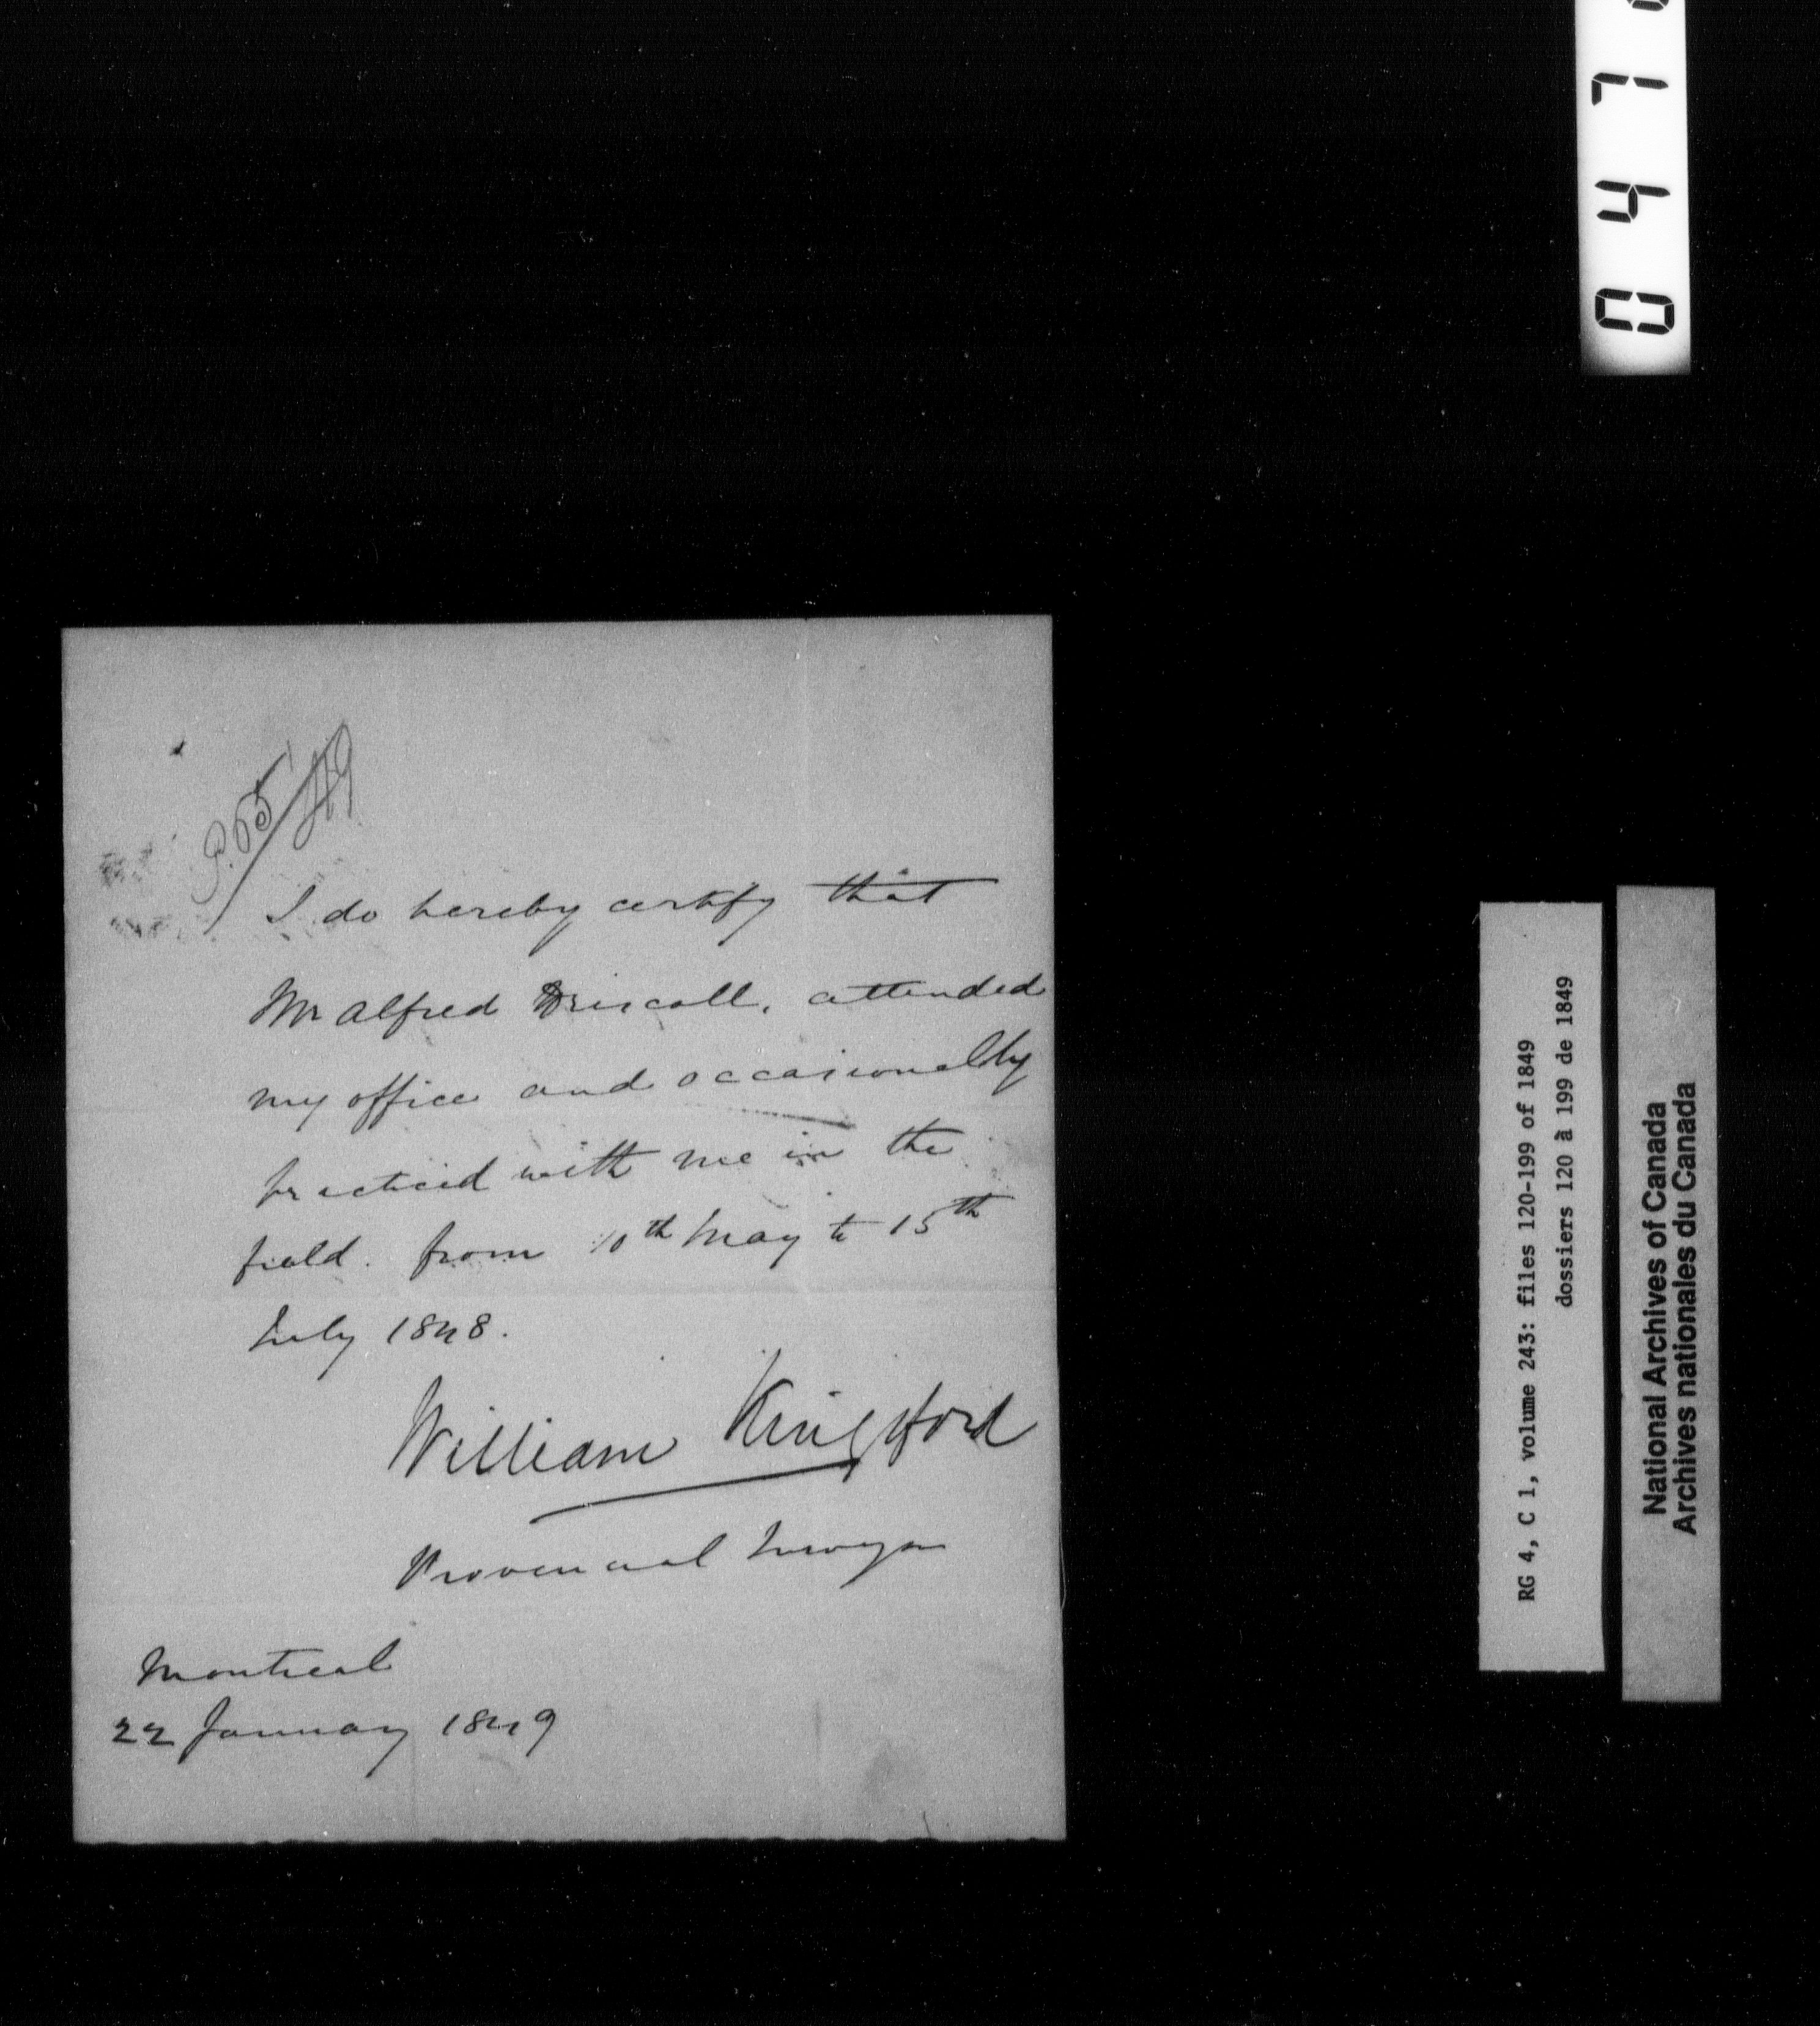 P. 65/49
I do hereby certify that
Mr Alfred Driscoll, attended
my office and occasionally
practiced with me in the
field. from 10th May to 15th
July 1848.
William Kingsford
Provincial Surveyor
Montreal
22 January 1849
RG 4, C 1, volume 243: files 120-199 of 1849
dossiers 120 à 199 de 1849
National Archives of Canada
Archives nationales du Canada
0 4 7